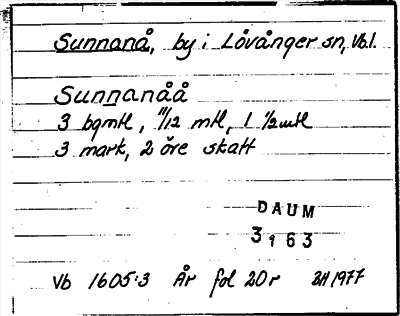 Sunnanå, by i Lövånger sn, Vb l.
Sunnanåå
3 bgmtl, 11/12 mtl, 1 1/2 mtl
3 mark, 2 öre skatt
DAUM
3163
Vb 1605:3 År fol 20 r BH 1977